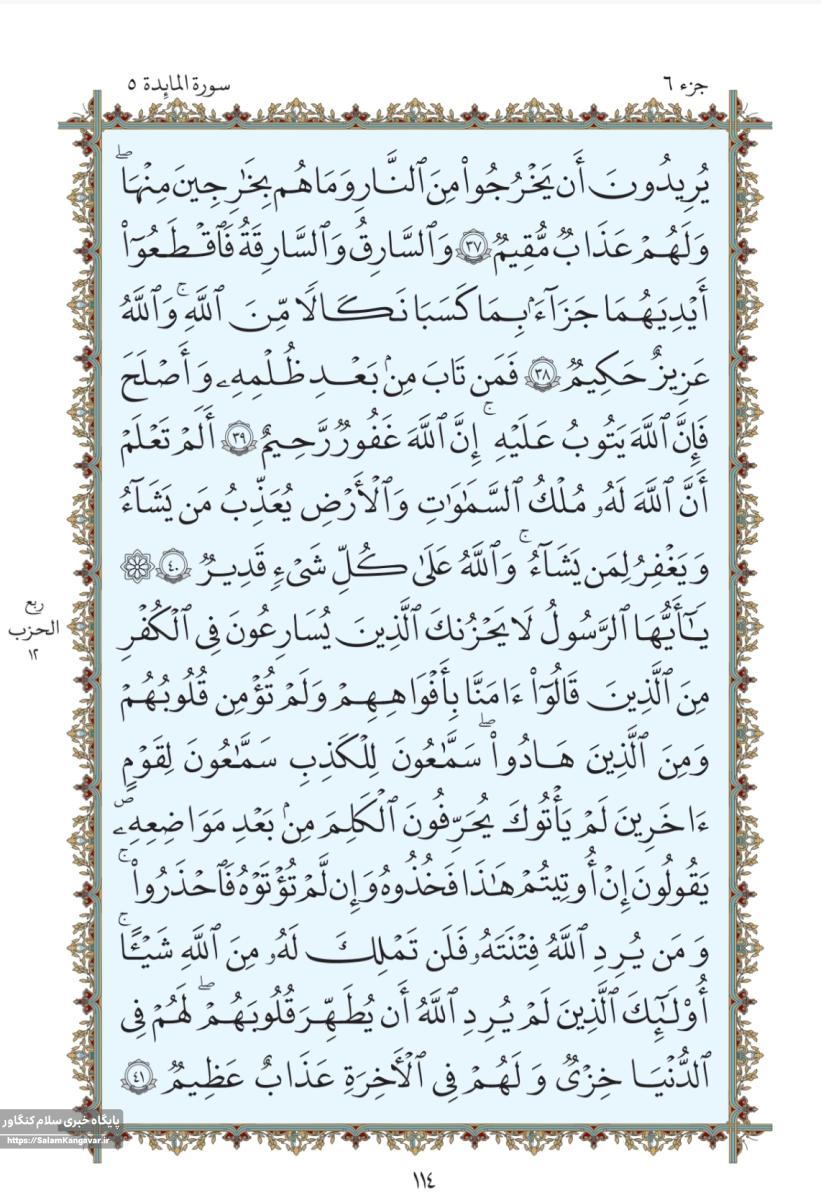 جزء ٦
سورة المائدة ٥
يُرِيدُونَ أَن يَخْرُجُوا۟ مِنَ ٱلنَّارِ وَمَا هُم بِخَٰرِجِينَ مِنْهَا ۖ
وَلَهُمْ عَذَابٌ مُّقِيمٌ ٣٧ وَٱلسَّارِقُ وَٱلسَّارِقَةُ فَٱقْطَعُوٓا۟
أَيْدِيَهُمَا جَزَآءَۢ بِمَا كَسَبَا نَكَالًا مِّنَ ٱللَّهِ ۚ وَٱللَّهُ
عَزِيزٌ حَكِيمٌ ٣٨ فَمَن تَابَ مِنۢ بَعْدِ ظُلْمِهِۦ وَأَصْلَحَ
فَإِنَّ ٱللَّهَ يَتُوبُ عَلَيْهِ ۚ إِنَّ ٱللَّهَ غَفُورٌ رَّحِيمٌ ٣٩ أَلَمْ تَعْلَمْ
أَنَّ ٱللَّهَ لَهُۥ مُلْكُ ٱلسَّمَٰوَٰتِ وَٱلْأَرْضِ يُعَذِّبُ مَن يَشَآءُ
وَيَغْفِرُ لِمَن يَشَآءُ ۚ وَٱللَّهُ عَلَىٰ كُلِّ شَىْءٍ قَدِيرٌ ٤٠ ۞
يَٰٓأَيُّهَا ٱلرَّسُولُ لَا يَحْزُنكَ ٱلَّذِينَ يُسَٰرِعُونَ فِى ٱلْكُفْرِ
مِنَ ٱلَّذِينَ قَالُوٓا۟ ءَامَنَّا بِأَفْوَٰهِهِمْ وَلَمْ تُؤْمِن قُلُوبُهُمْ
وَمِنَ ٱلَّذِينَ هَادُوا۟ ۖ سَمَّٰعُونَ لِلْكَذِبِ سَمَّٰعُونَ لِقَوْمٍ
ءَاخَرِينَ لَمْ يَأْتُوكَ يُحَرِّفُونَ ٱلْكَلِمَ مِنۢ بَعْدِ مَوَاضِعِهِۦ ۖ
يَقُولُونَ إِنْ أُوتِيتُمْ هَٰذَا فَخُذُوهُ وَإِن لَّمْ تُؤْتَوْهُ فَٱحْذَرُوا۟ ۚ
وَمَن يُرِدِ ٱللَّهُ فِتْنَتَهُۥ فَلَن تَمْلِكَ لَهُۥ مِنَ ٱللَّهِ شَيْـًٔا ۚ
أُو۟لَٰٓئِكَ ٱلَّذِينَ لَمْ يُرِدِ ٱللَّهُ أَن يُطَهِّرَ قُلُوبَهُمْ ۖ لَهُمْ فِى
ٱلدُّنْيَا خِزْىٌ وَلَهُمْ فِى ٱلْأَخِرَةِ عَذَابٌ عَظِيمٌ ٤١
ربع
الحزب
١٢
١١٤
پایگاه خبری سلام کنگاور
https://SalamKangavar.ir